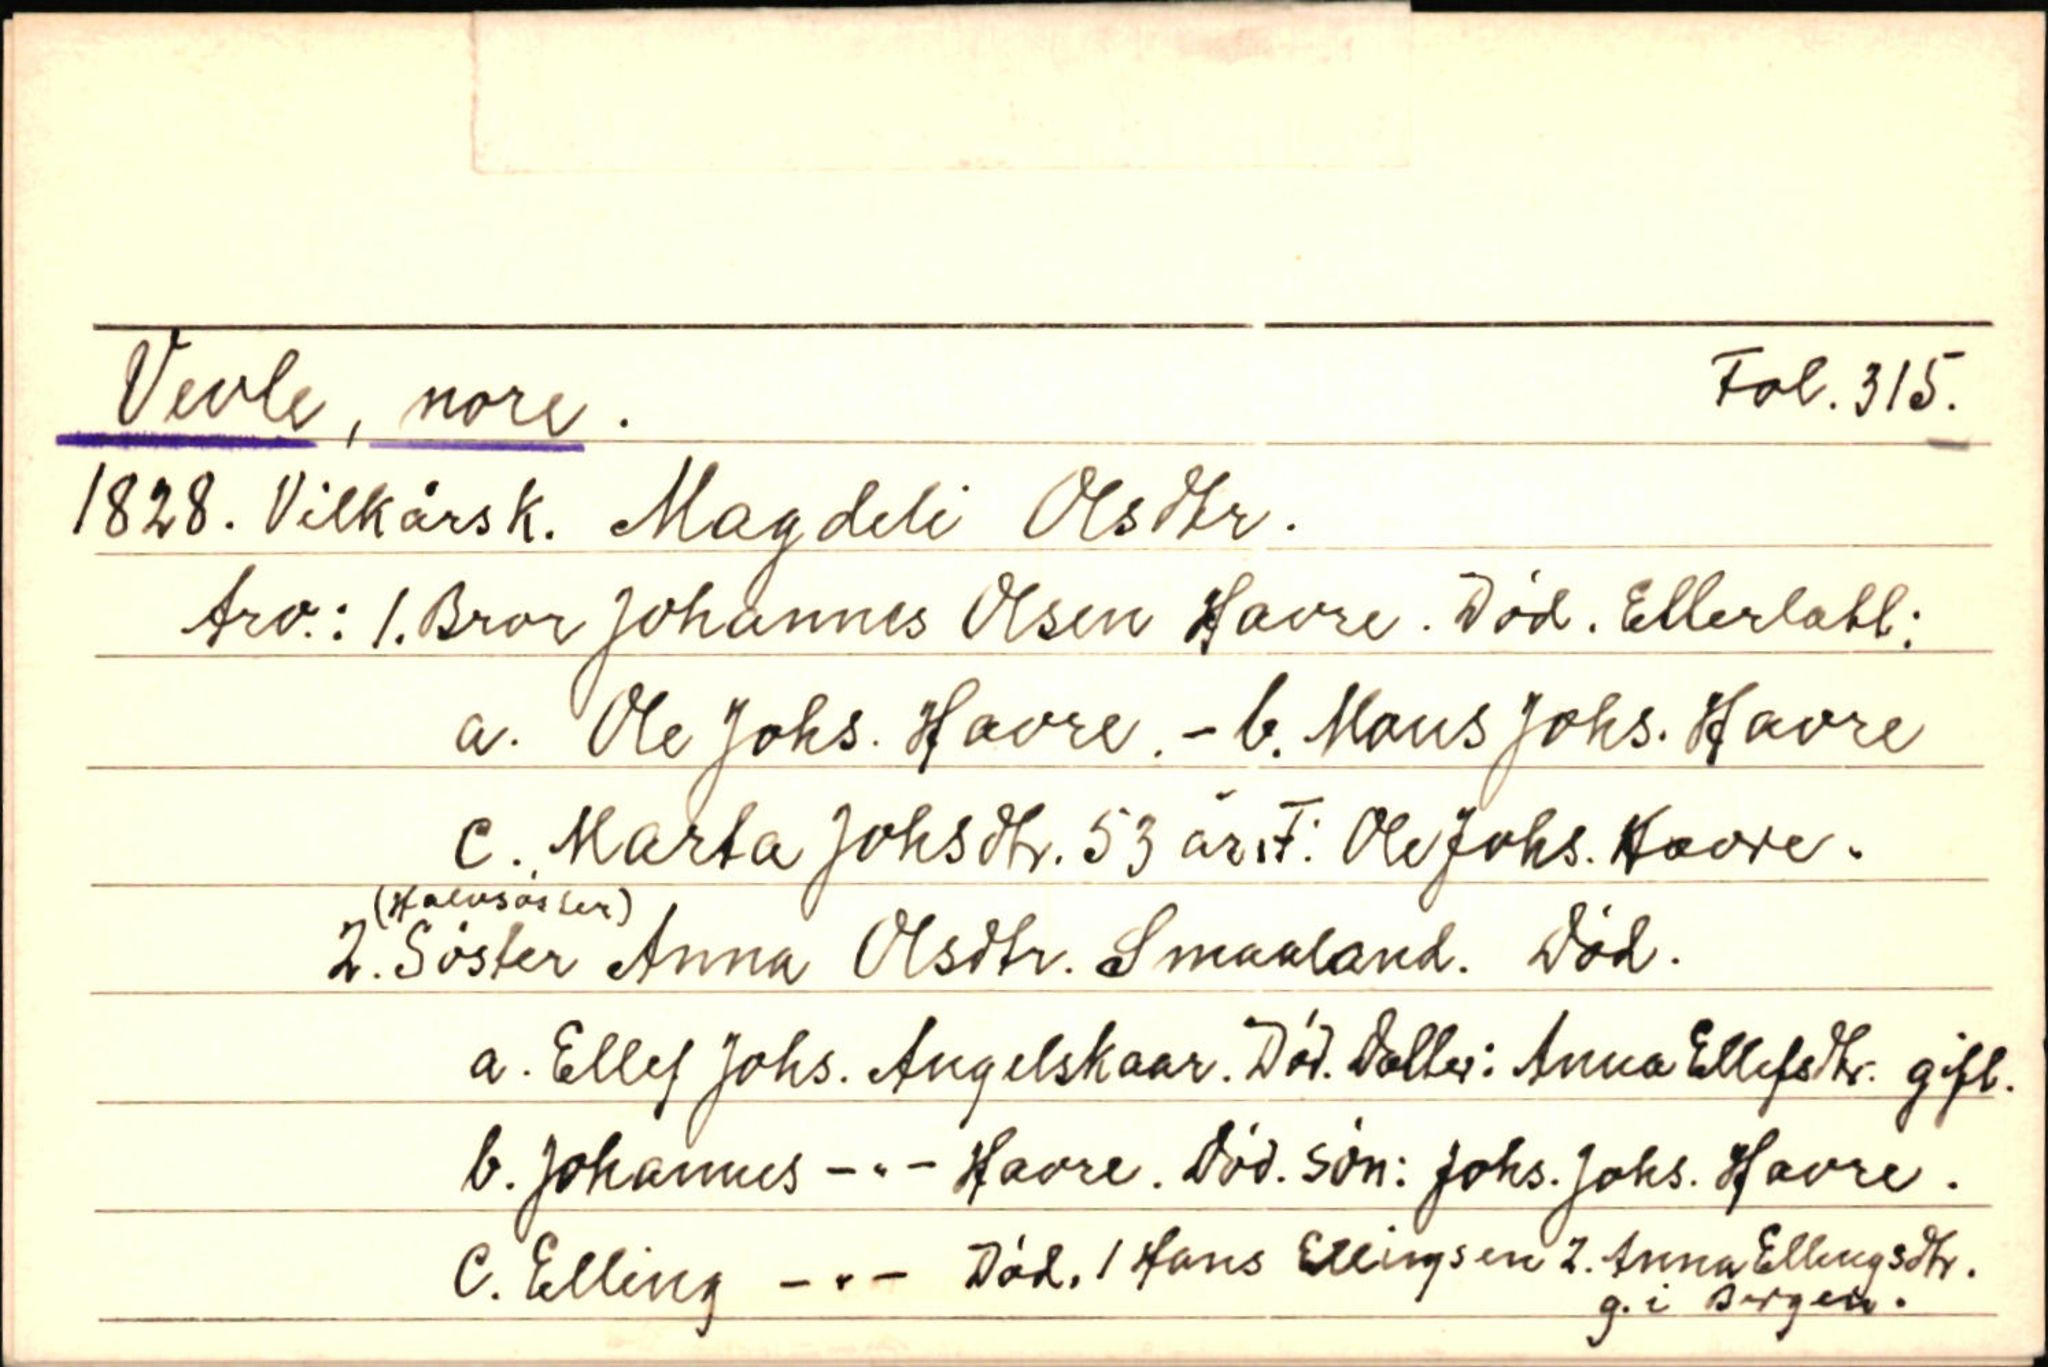 Vevle, nore. Fol. 315.
1828. Vilkårsk. Magdeli Olsdtr.
Arv.: 1. Bror Johannes Olsen Havre. Död. Etterlatt:
a. Ole Johs. Havre. - b. Mons Johs. Havre
c. Marta Johsdtr. 53 år. F: Ole Johs. Havre.
(Halvsöster)
2. Söster Anna Olsdtr. Smaaland. Död.
a. Ellef Johs. Angelskaar. Död. Datter: Anna Ellefsdtr. gift.
b. Johannes -"- Havre. Död. Sön: Johs. Johs. Havre.
c. Elling -"- Död. 1 Hans Ellingsen 2. Anna Ellingsdtr.
g. i Bergen.